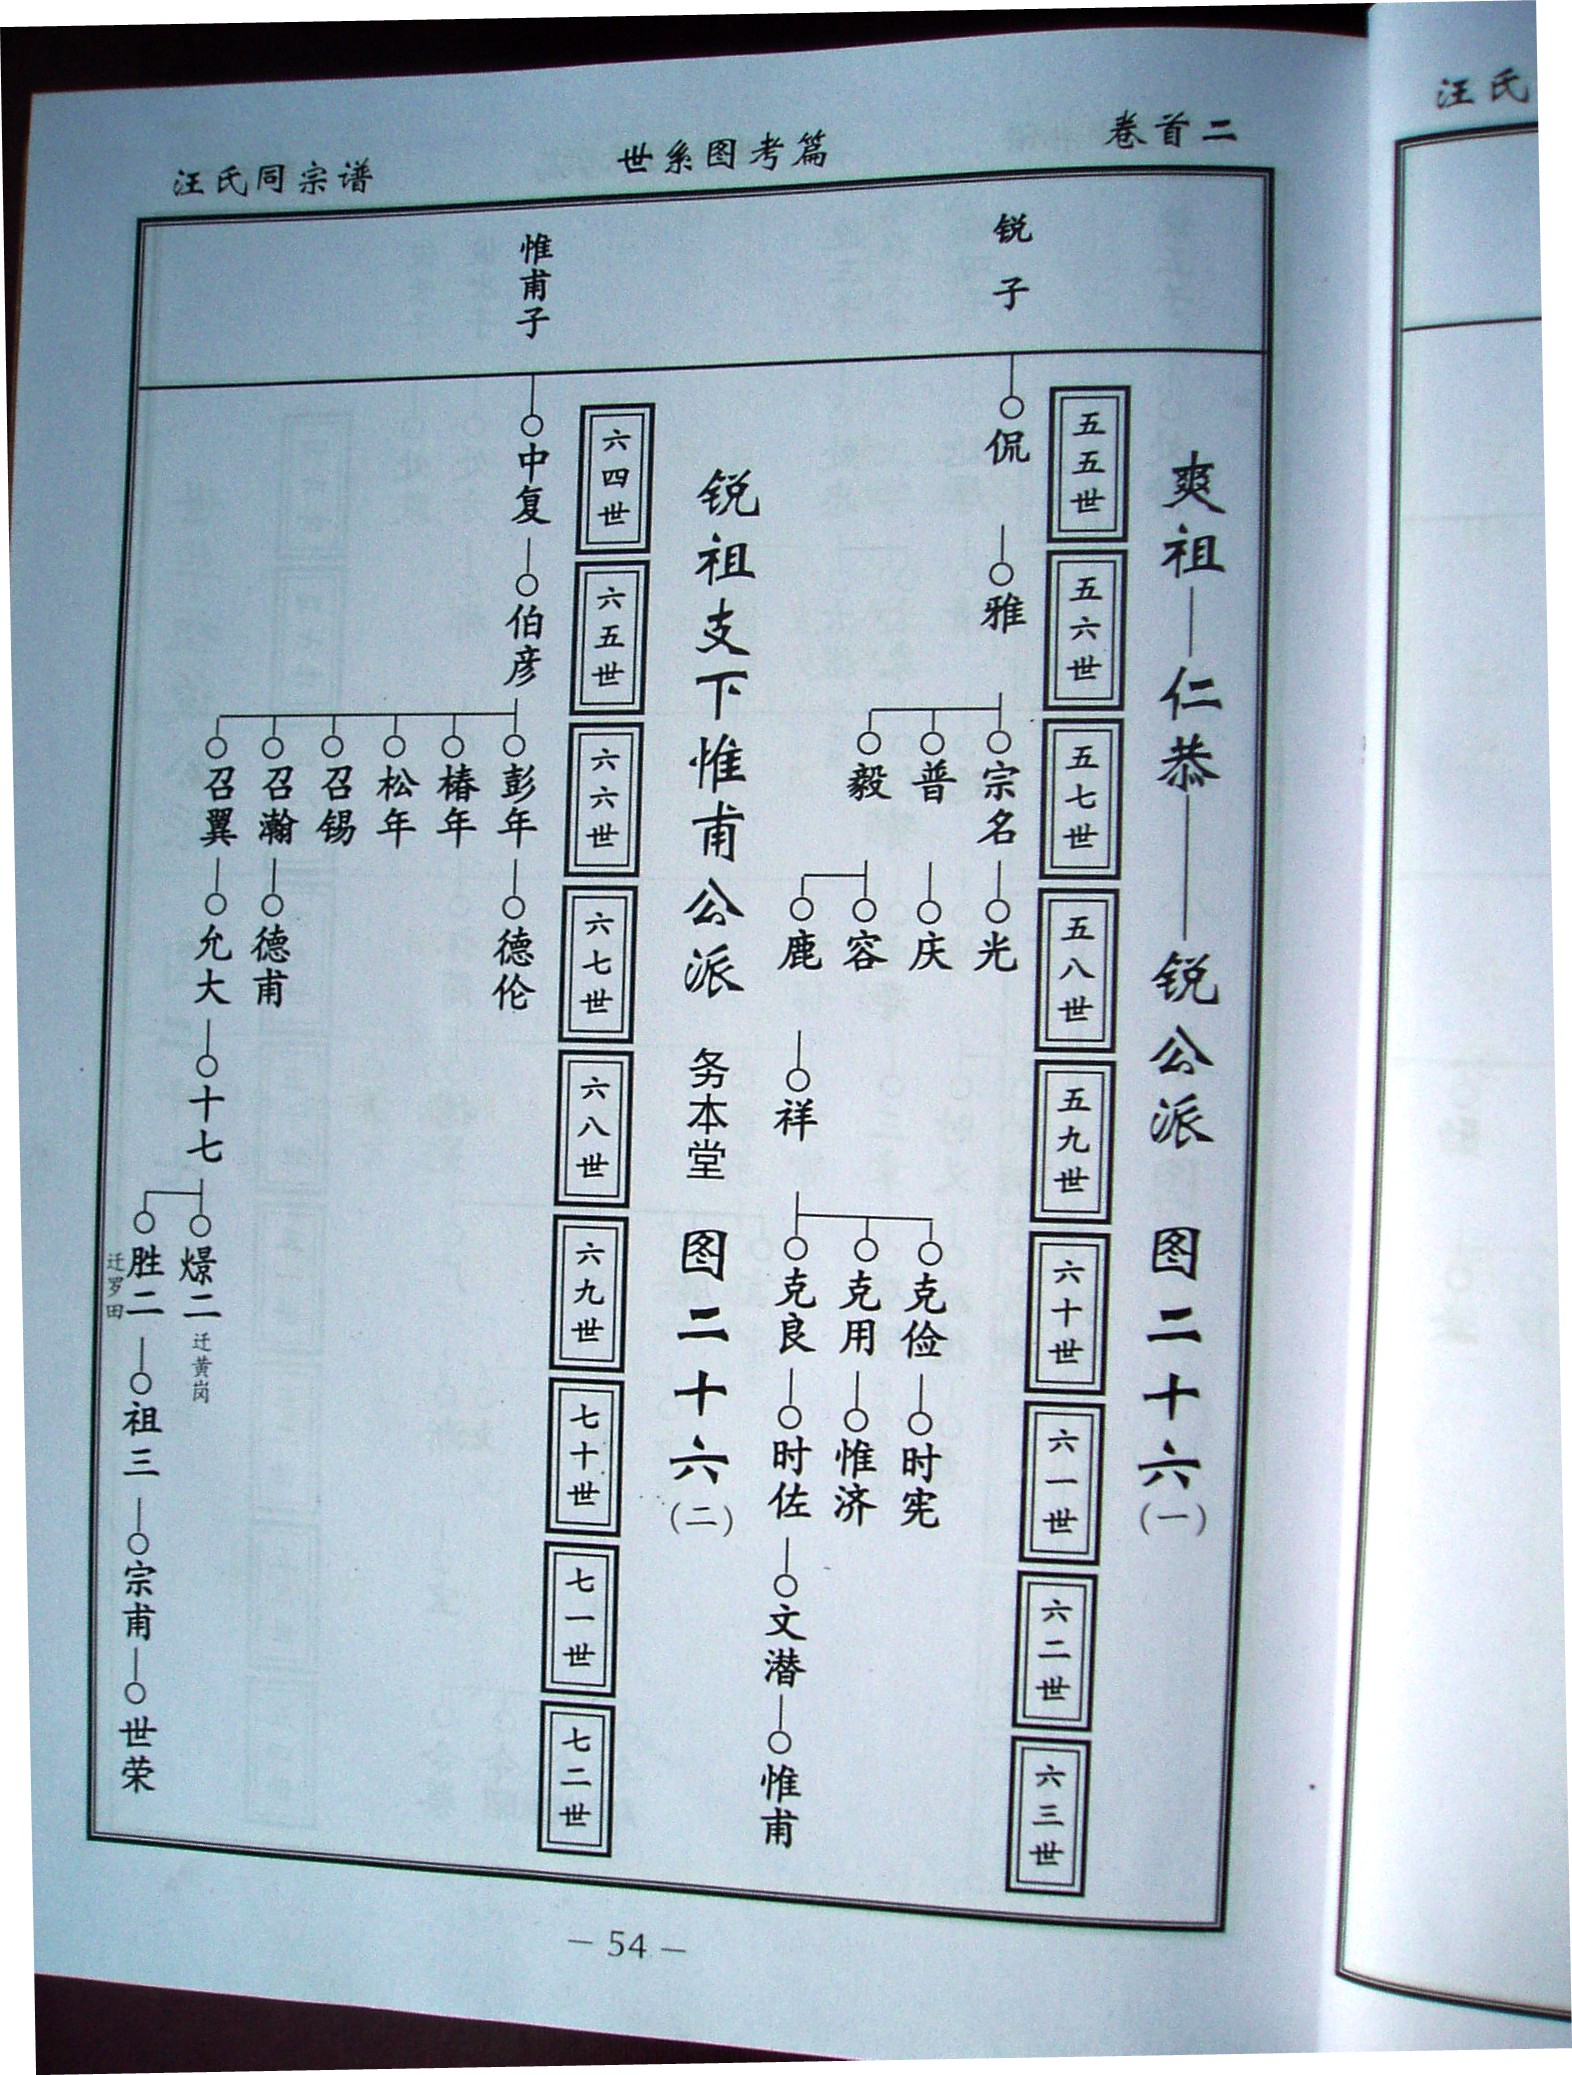 汪氏同宗谱
世系图考篇
卷首二
汪氏
爽祖—仁恭—锐公派 图二十六(一)
五五世
五六世
五七世
五八世
五九世
六十世
六一世
六二世
六三世
锐子
侃
雅
宗名
普
毅
光
庆
容
鹿
祥
克俭
克用
克良
时宪
惟济
时佐
文潜
惟甫
锐祖支下惟甫公派 务本堂 图二十六(二)
六四世
六五世
六六世
六七世
六八世
六九世
七十世
七一世
七二世
惟甫子
中复
伯彦
彭年
椿年
松年
召锡
召瀚
召翼
德伦
德甫
允大
十七
憬二
迁黄岗
胜二
迁罗田
祖三
宗甫
世荣
— 54 —